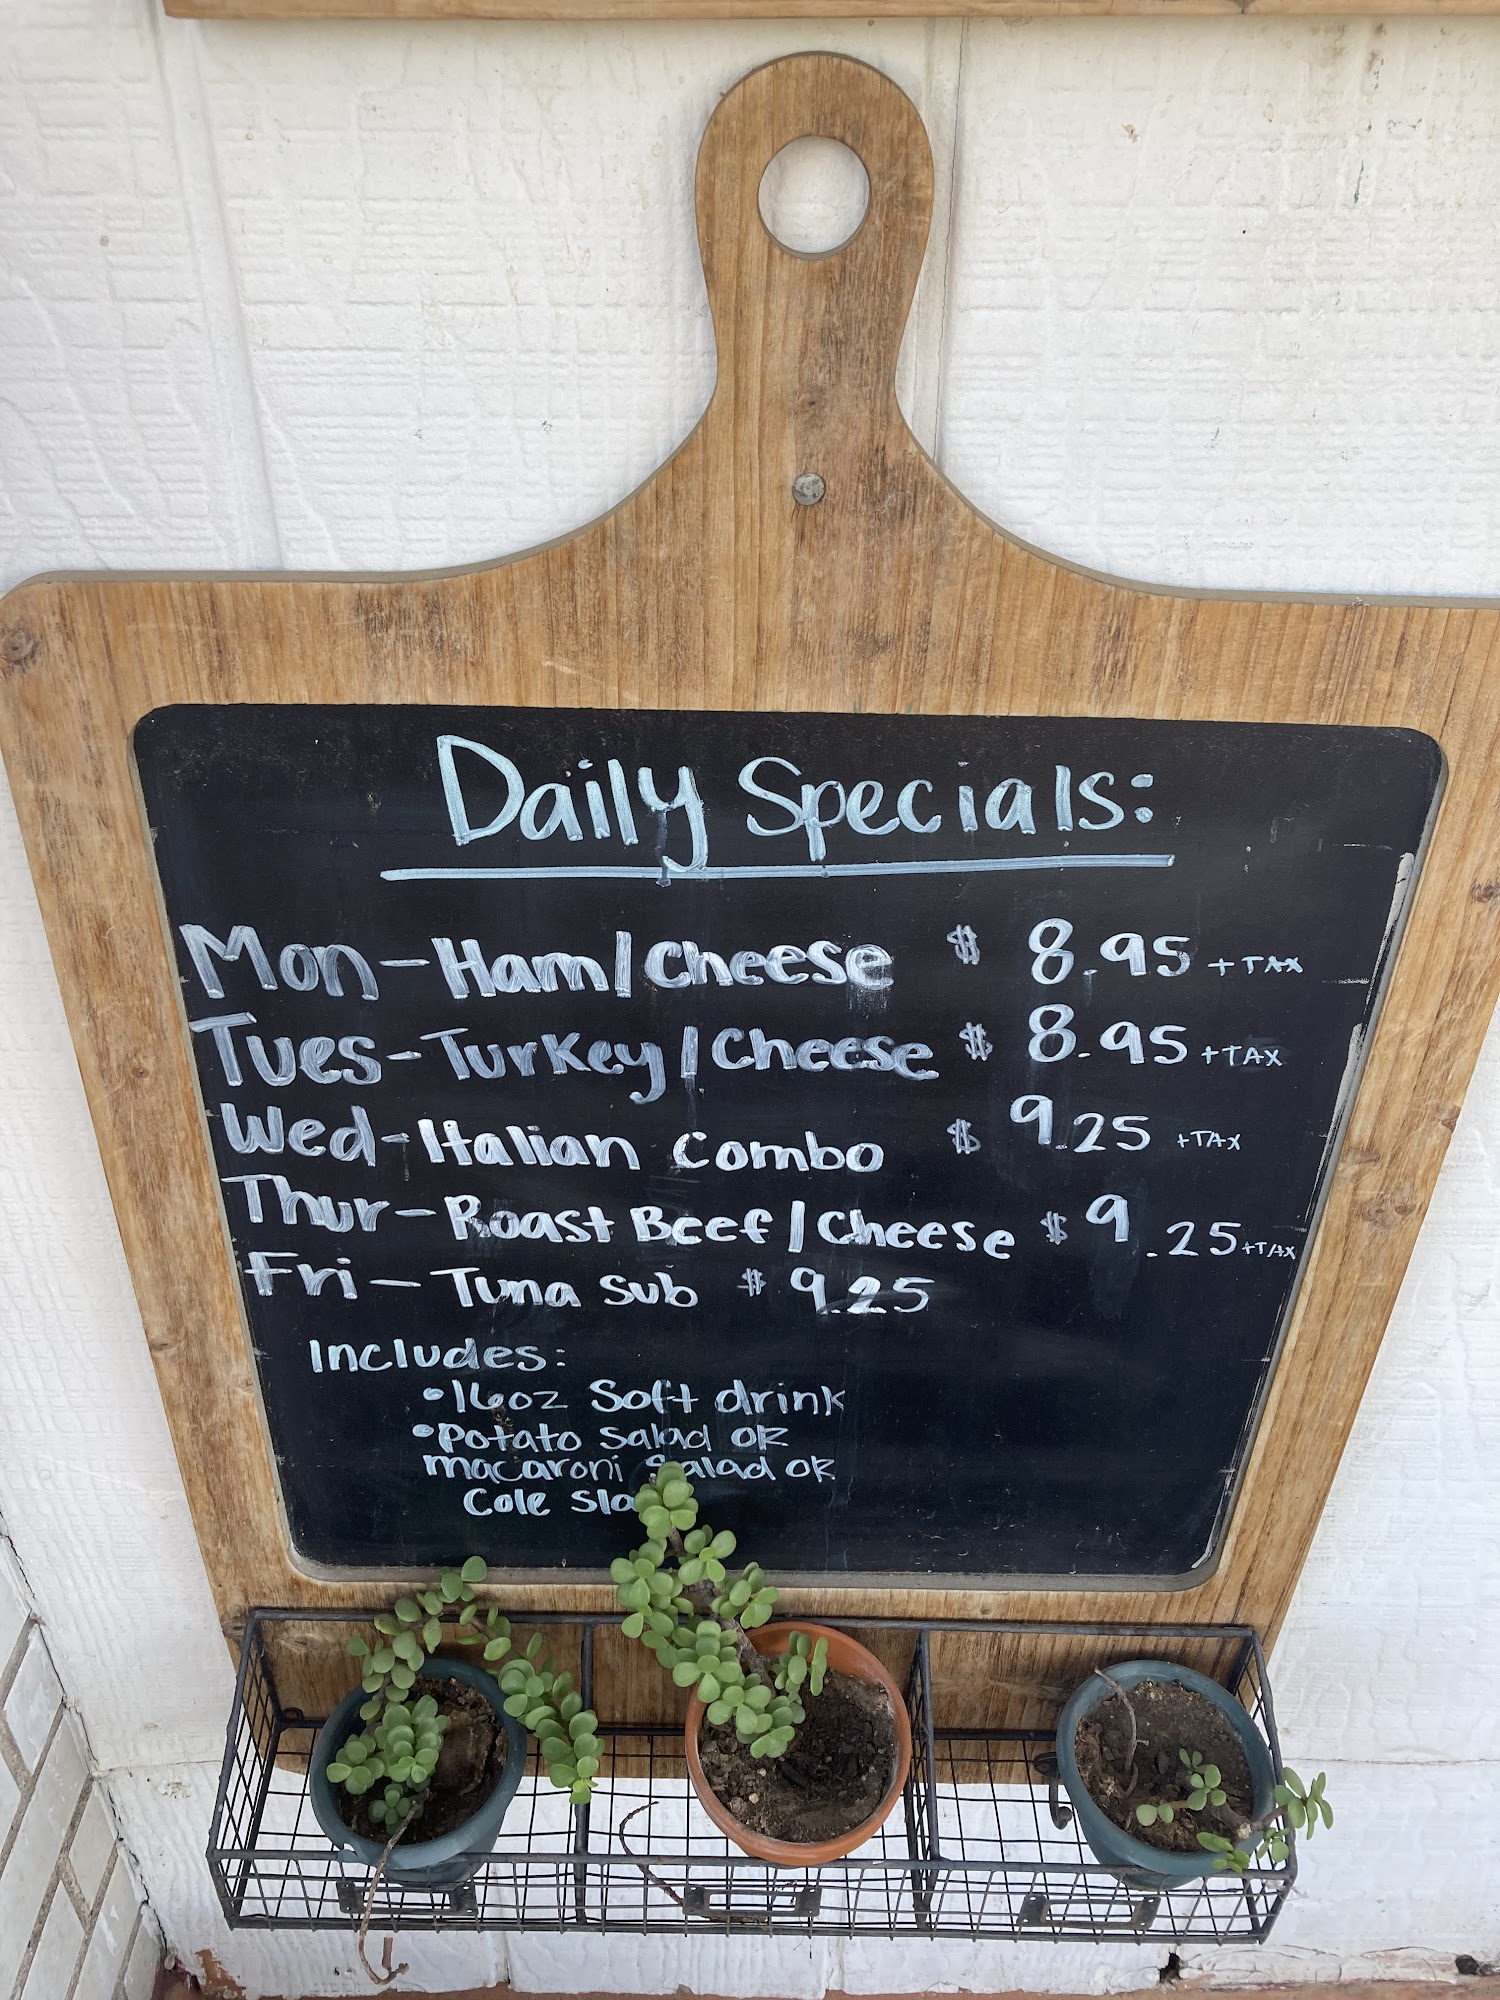 Daily Specials:
Mon-Ham/Cheese $ 8.95 +TAX
Tues-Turkey/Cheese $ 8.95 +TAX
Wed-Italian Combo $ 9.25 +TAX
Thur-Roast Beef/Cheese $ 9.25 +TAX
Fri-Tuna Sub $ 9.25
Includes:
•16oz Soft drink
•Potato Salad OR
macaroni Salad OR
Cole